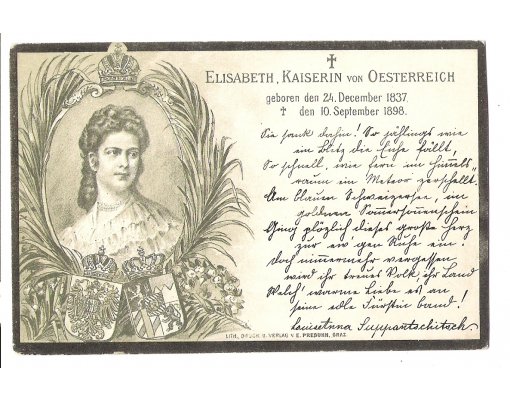 ✝
ELISABETH, KAISERIN VON OESTERREICH
geboren den 24. December 1837.
✝ den 10. September 1898.
Sie sank dahin! So jählings wie
ein Blitz die Eiche fällt,
So schnell, wie fern im Himmels„
raum ein Meteor zerschellt.
Am blauen Schweizersee, im
goldnen Sommersonnenschein
Ging plözlich dieses große Herz
zur ew'gen Ruhe ein!
Doch nimmermehr vergessen
wird ihr treues Volk, ihr Land
Welch' warme Liebe es an
seine edle Fürstin band!
Suppantschitsch.
LITH., DRUCK U. VERLAG V. E. PREBUHN, GRAZ